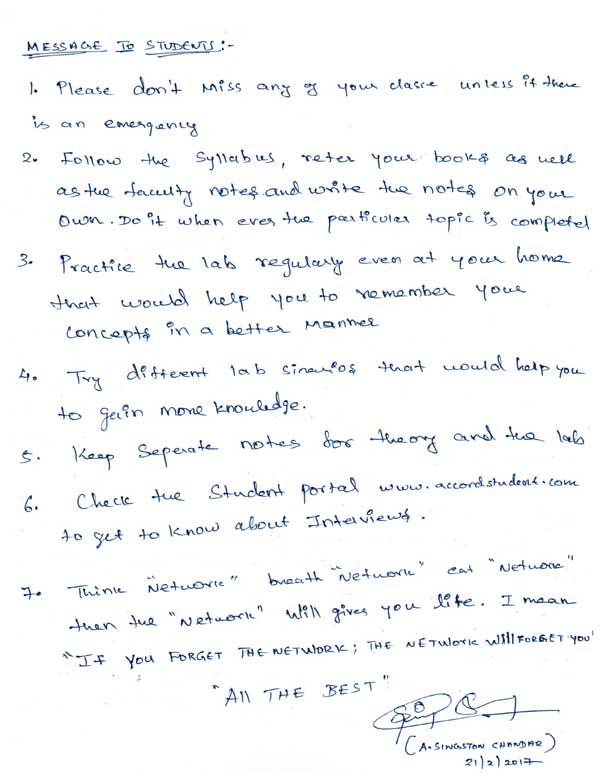 MESSAGE TO STUDENTS:-
1. Please don't miss any of your classe unless if there
is an emergency
2. Follow the syllabus, refer your books as well
as the faculty notes and write the notes on your
own. Do it when ever the particular topic is completed
3. Practice the lab regularly even at your home
that would help you to remember your
concepts in a better manner
4. Try different lab sinarios that would help you
to gain more knowledge.
5. Keep Seperate notes for theory and the lab
6. Check the Student portal www.accordstudent.com
to get to know about Interviews.
7. Think "Network" breath "Network" eat "Network"
then the "Network" will gives you life. I mean
"IF YOU FORGET THE NETWORK; THE NETWORK Will FORGET YOU'
"All THE BEST"
(A. SINGSTON CHANDAR)
21/2/2017